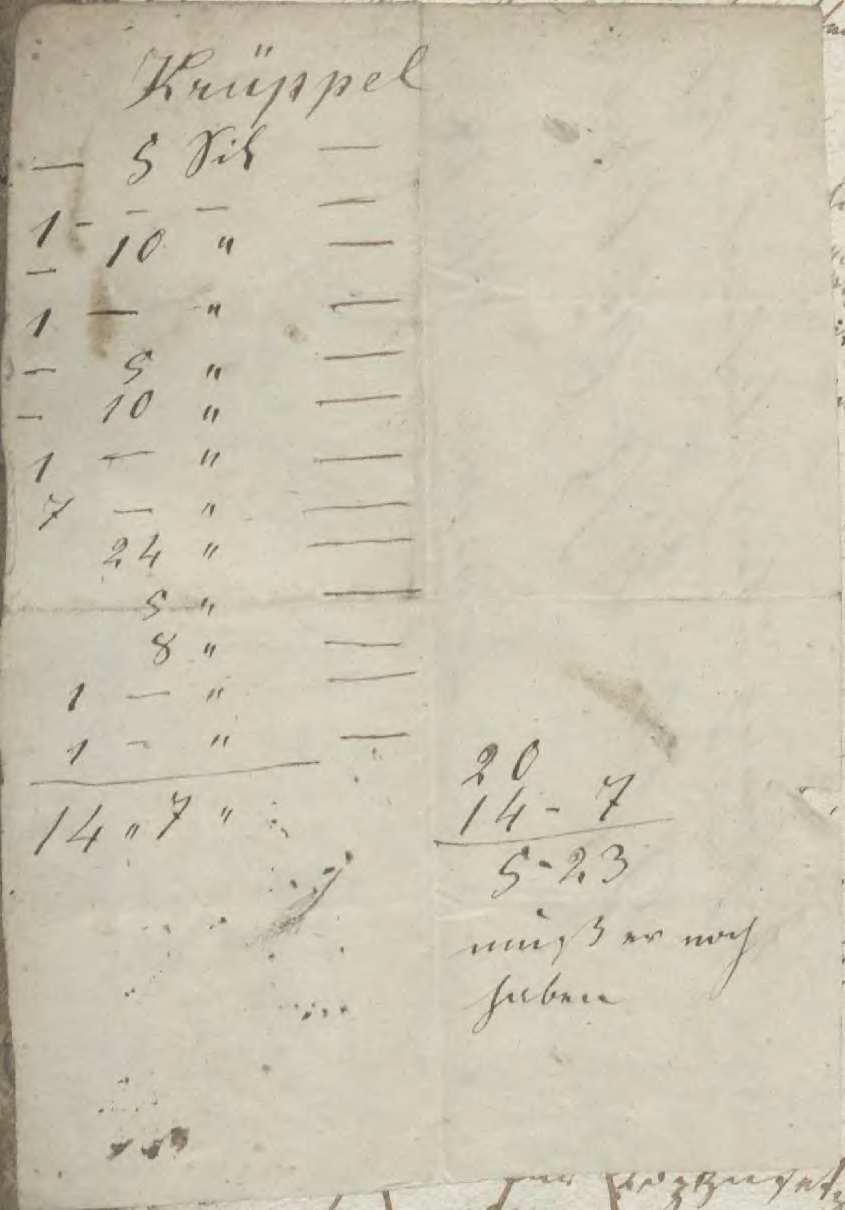 Krüppel
— 5 Sil —
1 - — — —
— 10 " —
1 — " —
— 5 " —
— 10 " —
1 — " —
7 — " —
24 " —
5 " —
8 " —
1 — " —
1 — " —
14 " 7 "
20
14 - 7
5 - 23
muß er noch
haben